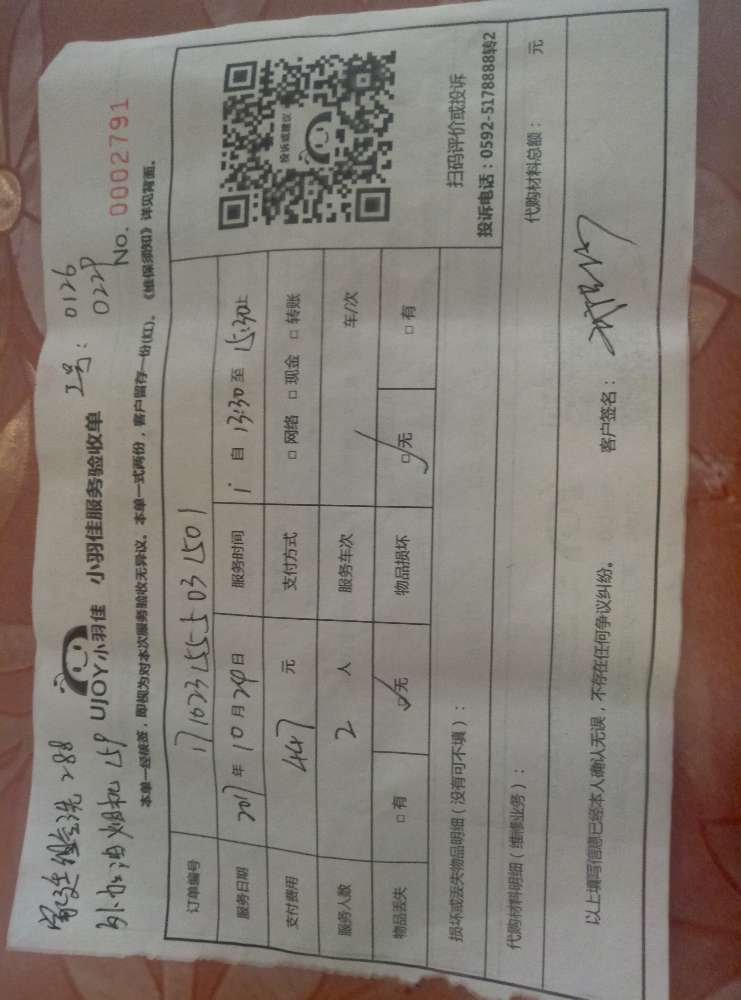 家庭组合洗 288
外加油烟机 159
工号：0126
0229
UJOY小羽佳 小羽佳服务验收单
No. 0002791
本单一经核签，即视为对本次服务验收无异议。本单一式两份，客户留存一份(红)。《维保须知》详见背面。
订单编号 1710231555031501
服务日期 2017 年 10 月 24 日 服务时间 自 13:30 至 15:30止
支付费用 447 元 支付方式 □ 网络 □ 现金 □ 转账
服务人数 2 人 服务车次 车/次
物品丢失 □ 有 □ 无 物品损坏 □ 无 □ 有
投诉或建议
扫码评价或投诉
投诉电话：0592-5178888转2
损坏或丢失物品明细（没有可不填）：
代购材料明细（维修业务）： 代购材料总额： 元
以上填写信息已经本人确认无误，不存在任何争议纠纷。 客户签名：